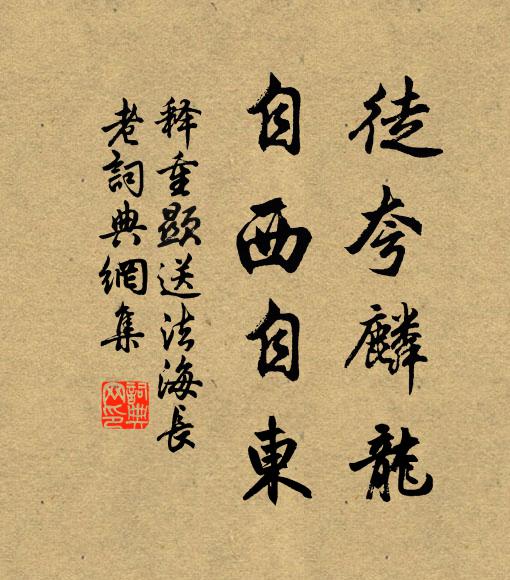 徒夸麟龍
自西自東
释重顯送法海長
老詞典網集
詞典
网印